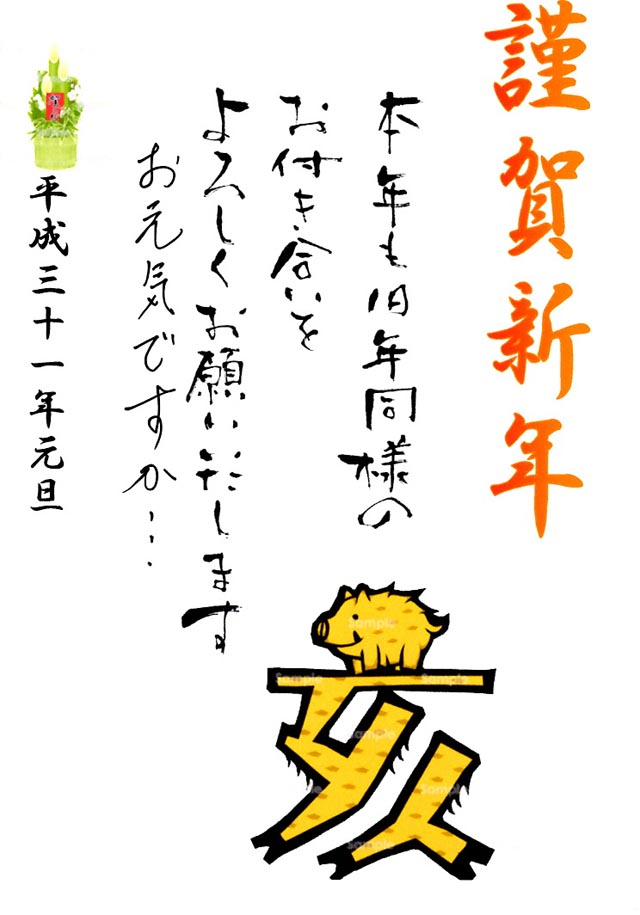 謹賀新年
本年も旧年同様の
お付き合いを
よろしくお願いいたします
お元気ですか…
平成三十一年元旦
亥
Sample
Sample
Sample
Sample
Sample
Sample
Sample
Sample